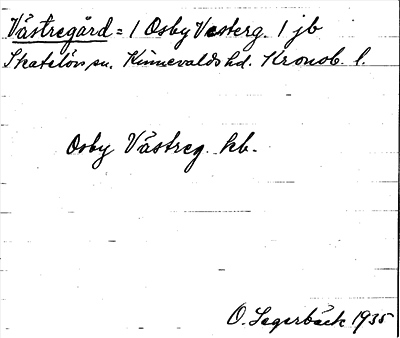 Västregård = / Osby Vesterg. / jb
Skatelövs sn. Kinnevalds hd. Kronob. l.
Osby Västreg. kb.
O. Segerbäck 1935